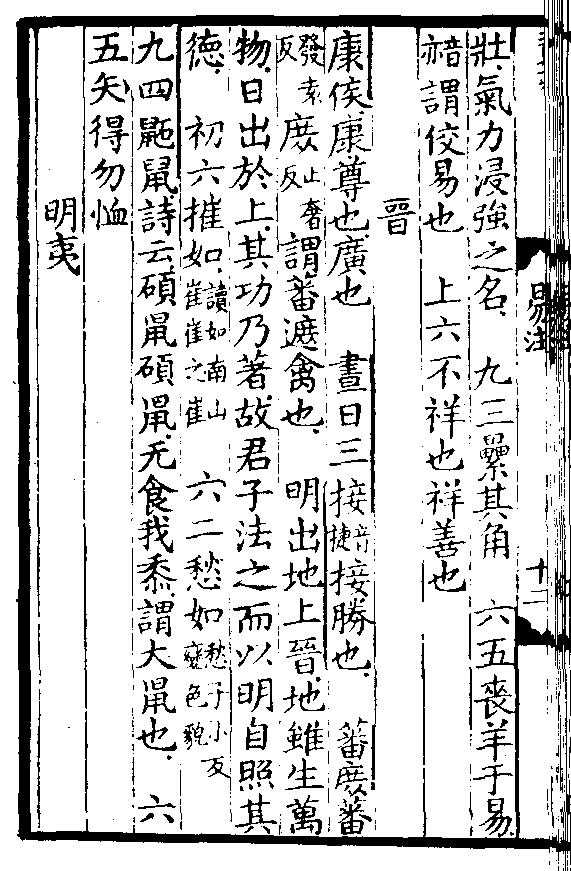 壯氣力浸強之名　九三羸其角　六五喪羊于易
音亦謂佼易也　上六不祥也祥善也
晋
康侯康尊也廣也　晝日三接音捷接勝也　蕃庶蕃
發袁反庶止奢反謂蕃遮禽也　明出地上晋地雖生萬
物日出於上其功乃著故君子法之而以明自照其
德　初六摧如讀如南山崔崔之崔　六二愁如愁子小反變色貌
九四鼫鼠詩云碩鼠碩鼠无食我黍謂大鼠也　六
五矢得勿恤
明夷
易注
十二